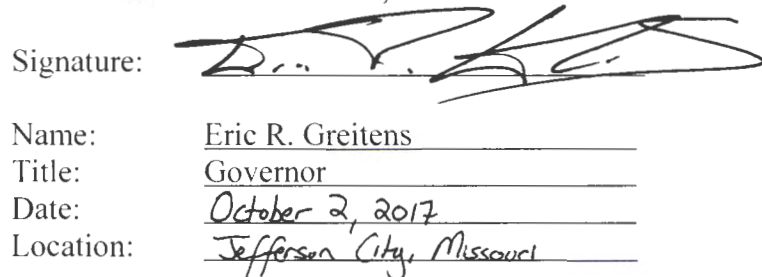 Signature:
Name: Eric R. Greitens
Title: Governor
Date: October 2, 2017
Location: Jefferson City, Missouri